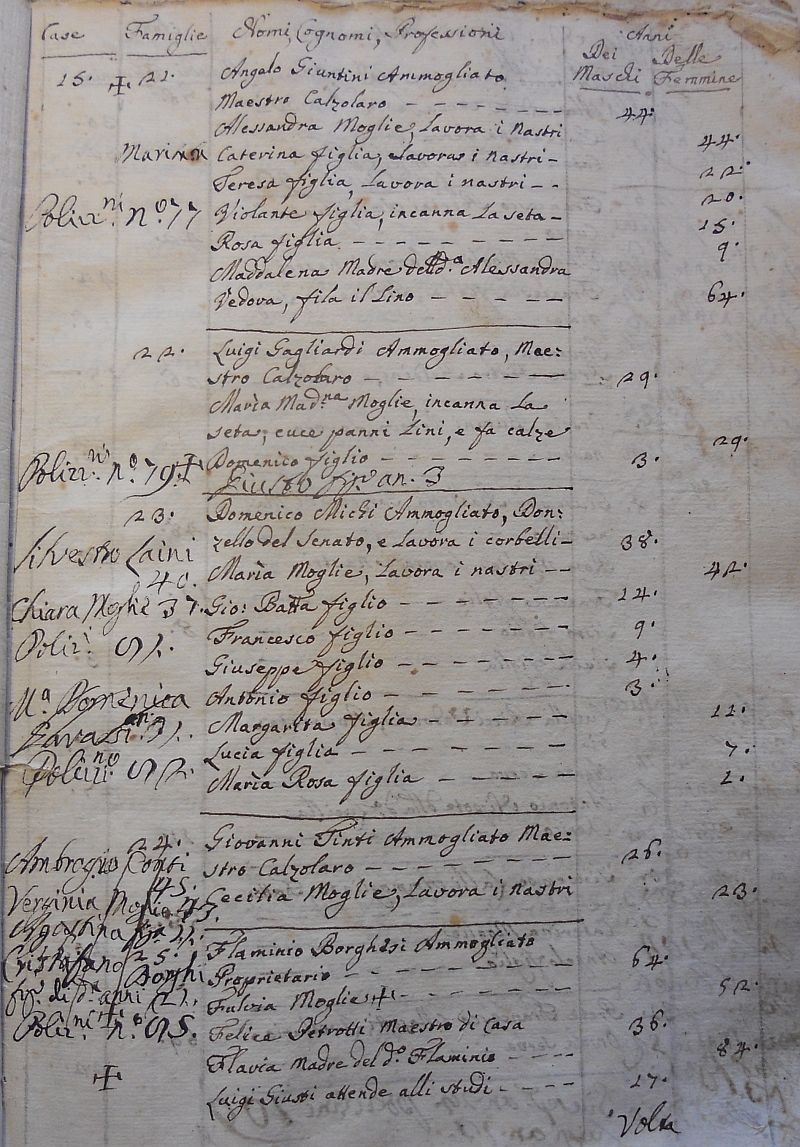 Case Famiglie Nomi, Cognomi, Professioni Anni
Dei Maschi Delle Femmine
15. 21. Angelo Giuntini Ammogliato
Maestro Calzolaro 44.
Alessandra Moglie, Lavora i Nastri 44.
Caterina figlia, Lavora i nastri 22.
Teresa figlia, Lavora i nastri 20.
n.o 77 Violante figlia, incanna La seta 15.
Rosa figlia 9.
Maddalena Madre dell d.a Alessandra
Vedova, fila il Lino 64.
22. Luigi Gagliardi Ammogliato, Mae=
stro Calzolaro 29.
Maria Mad.na Moglie, incanna La
seta, cuce panni Lini, e fa calze 29.
n.o 79. Domenico figlio 3.
Giusto an. 3
23. Domenico Michi Ammogliato, Don=
zello del Senato, e Lavora i corbelli 38.
Silvestro Laini
40. Maria Moglie, Lavora i nastri 42.
Chiara Moglie 37. Gio: Batta figlio 14.
Francesco figlio 9.
Giuseppe figlio 4.
M.a Domenica Antonio figlio 3.
Margarita figlia 11.
Lucia figlia 7.
Maria Rosa figlia 2.
24. Giovanni Tinti Ammogliato Mae=
Ambrogio Conti stro Calzolaro 26.
45.
Verginia Moglie 45. Cecilia Moglie, Lavora i nastri 23.
Agostina
25. Flaminio Borghesi Ammogliato
Borghi Proprietario 64.
anni Fulvia Moglie 52.
n.o 95. Felice Petrotti Maestro di Casa 36.
Flavia Madre del d.o Flaminio 84.
Luigi Giusti attende alli studi 17.
Volta